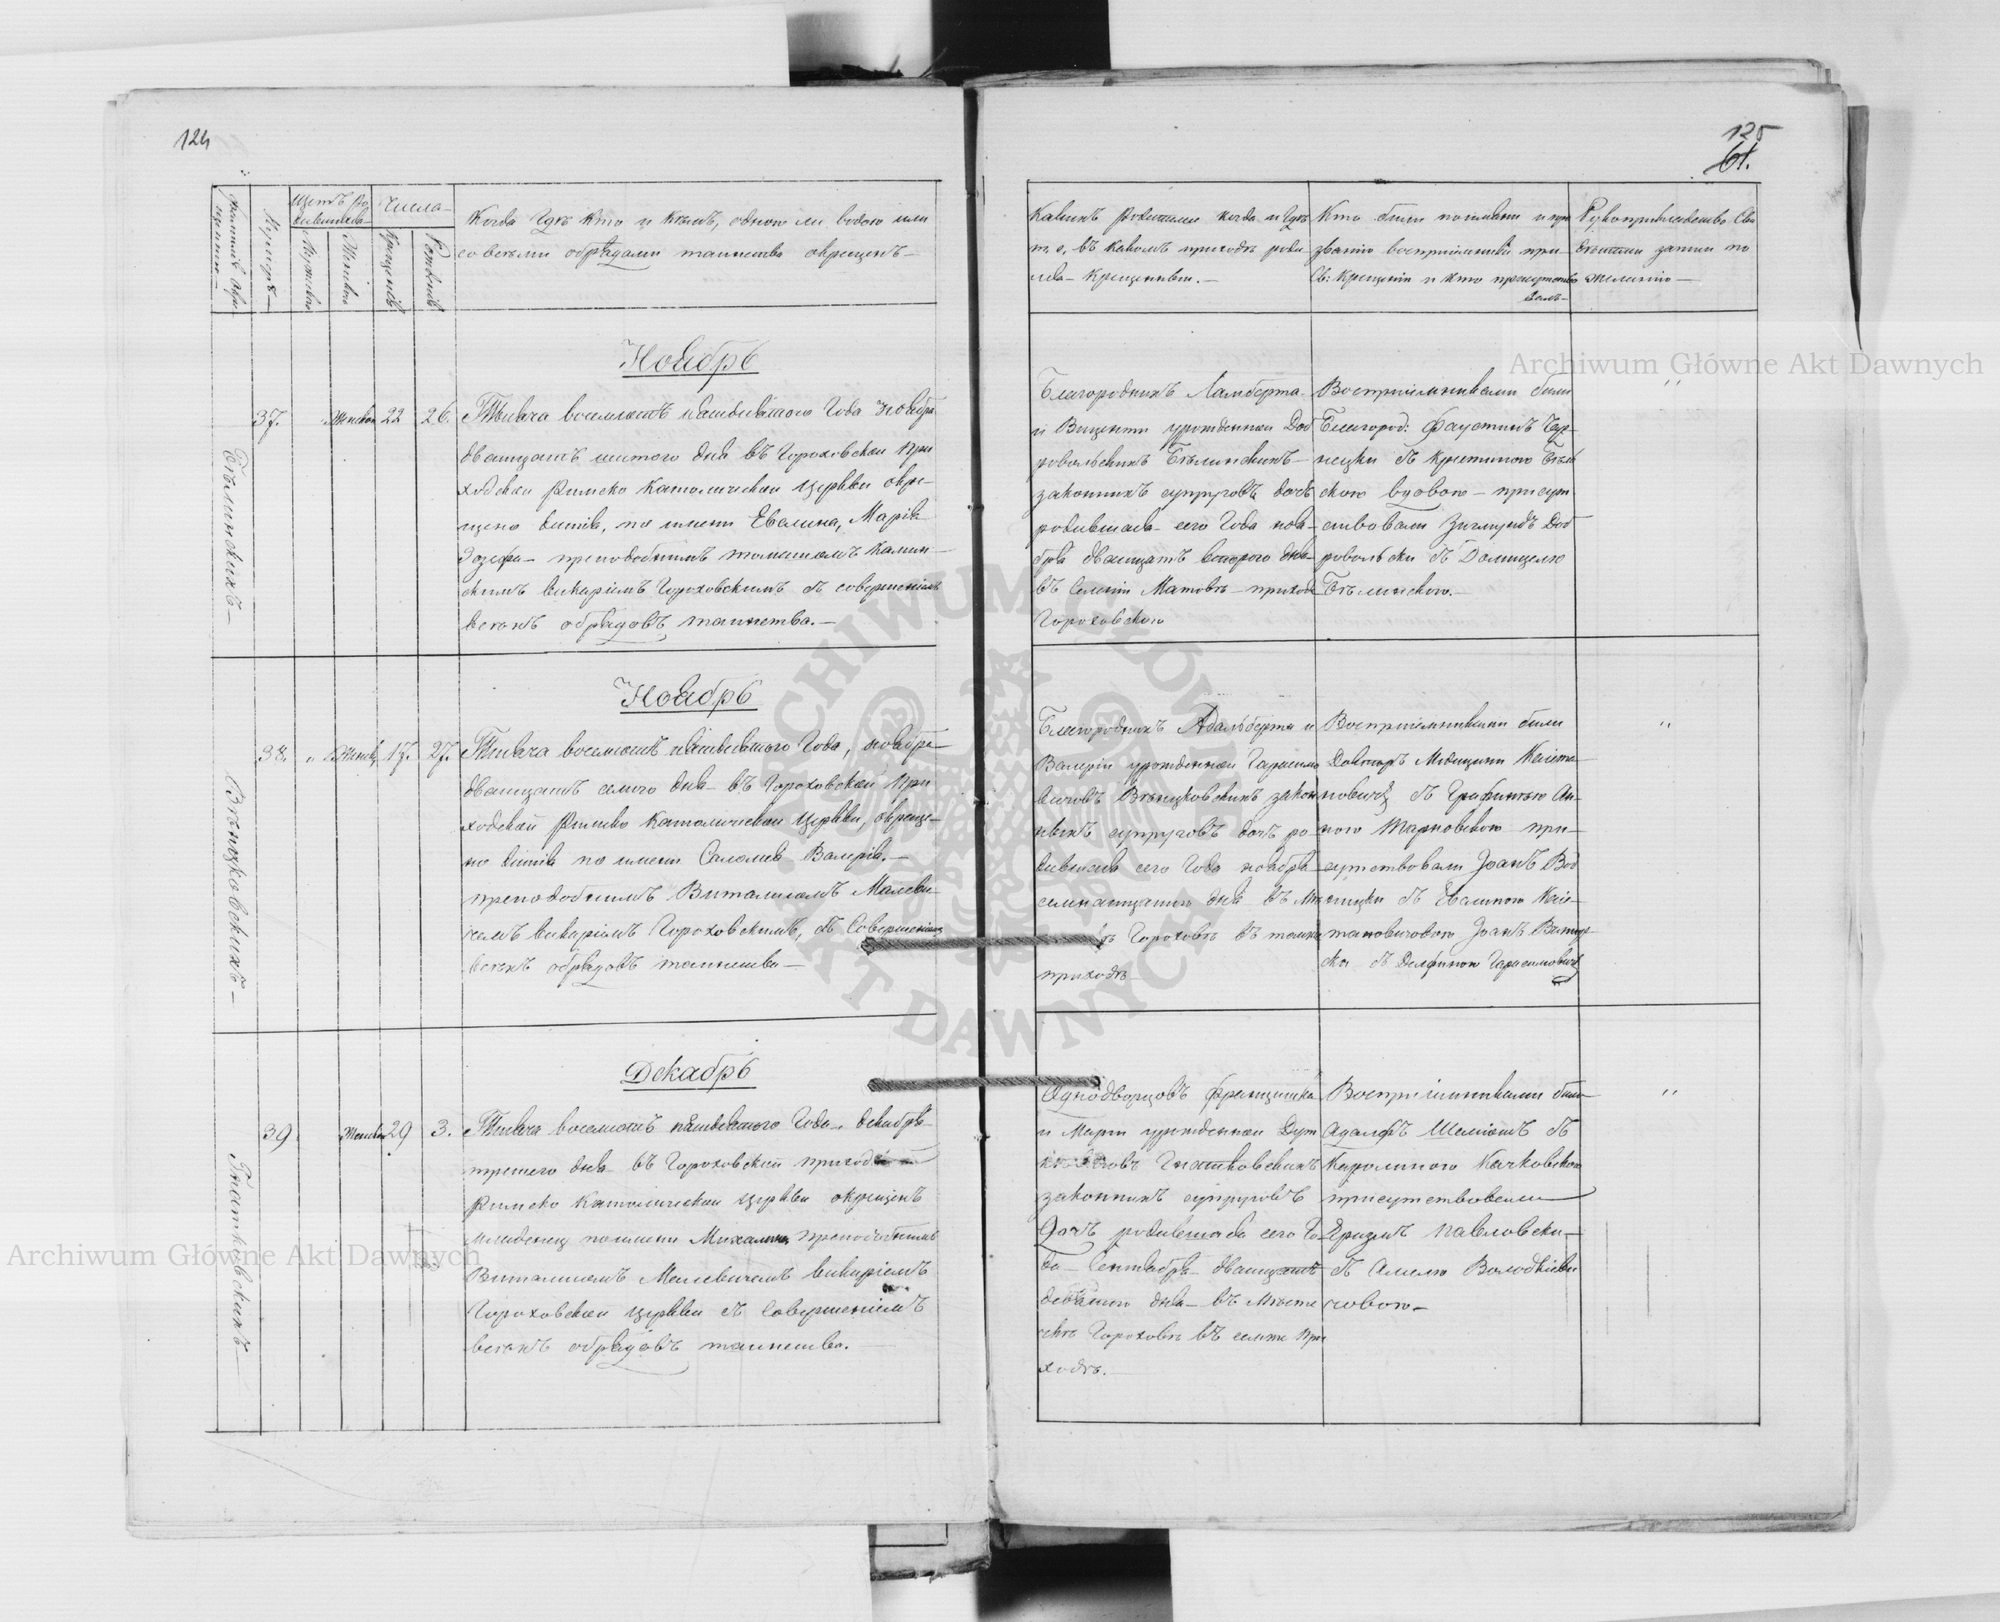 124
Щетъ Ро
дившихся
Числа
Мужеска
Женска
Когда Гдѣ Кто и Кѣмъ, одною ли водою или
со всѣми обрядами таинства окрещенъ
Ноябрь
37. Женска 22 26.
Тысяча восемьсотъ года Ноября
двадцать шестого дня въ Гороховской При
ходской Римско Католической Церкви окре-
щено дитя, по имени Евелина, Марія
Юзефа преподобнымъ Томашомъ Калин-
скимъ викаріемъ Гороховскимъ съ совершеніемъ
всѣхъ обрядовъ таинства.
Бѣлинскихъ
Ноябрь
38. 17. 27.
Тысяча восемьсотъ Года, ноября
двадцать семого дня въ Гороховской При
ходской Римско Католической Церкви, окреще-
но дитя по имени Саломея Валерія.
преподобнымъ Виталисомъ Малеви-
чемъ викаріемъ Гороховскимъ, съ Совершеніемъ
всѣхъ обрядовъ таинства
Вѣнцковскихъ
Декабрь
39 Женска 29 3.
Тысяча восемьсотъ Года декабря
третего дня въ Гороховской приход
Римско Католической Церкви окрещенъ
младенец по имени Михалина преподобнымъ
Виталисомъ Малевичемъ викаріемъ
Гороховской Церкви съ Совершеніемъ
всѣхъ обрядовъ таинства.
Гнатковскихъ
125
61.
Какихъ Родители когда и Гдѣ
т. е, въ какомъ приходѣ роди
лся Крещенный.
Кто были по имени и про
званію воспріемники при
Св: Крещеніи и кто присутство
валъ
Рукоприкладство Сви
записи по
желанію
Благородныхъ Ламберта
и Винценти урожденной Доб
ровольскихъ Бѣлинскихъ
законныхъ супруговъ дочь
родившаяся сего Года ноя-
бря двадцать второго дня
въ Селеніи Матовѣ прихода
Гороховского
Воспріемниками были
Благород: Фаустинъ Чар-
нецки съ Кристиною Бѣлин
скою вдовою присут
ствовали Зигмундъ Доб
ровольски съ Домицелю
Бѣлинскою.
Благородныхъ Адальберта и
Валеріи урожденной Гарасимо
вичовъ Вѣнцковскихъ закон
ныхъ супруговъ дочь ро
дившаяся сего Года ноября
семнатцатого дня въ Мѣ
Гороховѣ въ томже
приходѣ
Воспріемниками были
Докторъ Медицыни Каета
новичъ съ Графинею Ан-
ною Тарновскою при-
сутствовали Іоанъ Вод
ницки съ Евелиною Кає-
тановичовою Іоанъ
ски съ Делфиною Гарасимовичъ
Однодворцовъ Францишка
и Марти урожденной
Гнатковскихъ
законныхъ супруговъ
Дочъ родившаяся сего Го
да Сентября двадцать
девятого дня въ Мѣсте
чкѣ Гороховѣ въ семже При
ходѣ.
Воспріемниками были
Адалфъ Шеліотъ съ
Каролиною Качковскою
присутствовали
Еразмъ Павловски
съ Амелю Володкіеви
човою
Archiwum Główne Akt Dawnych
Archiwum Główne Akt Dawnych
ARCHIWUM GŁÓWNE AKT DAWNYCH